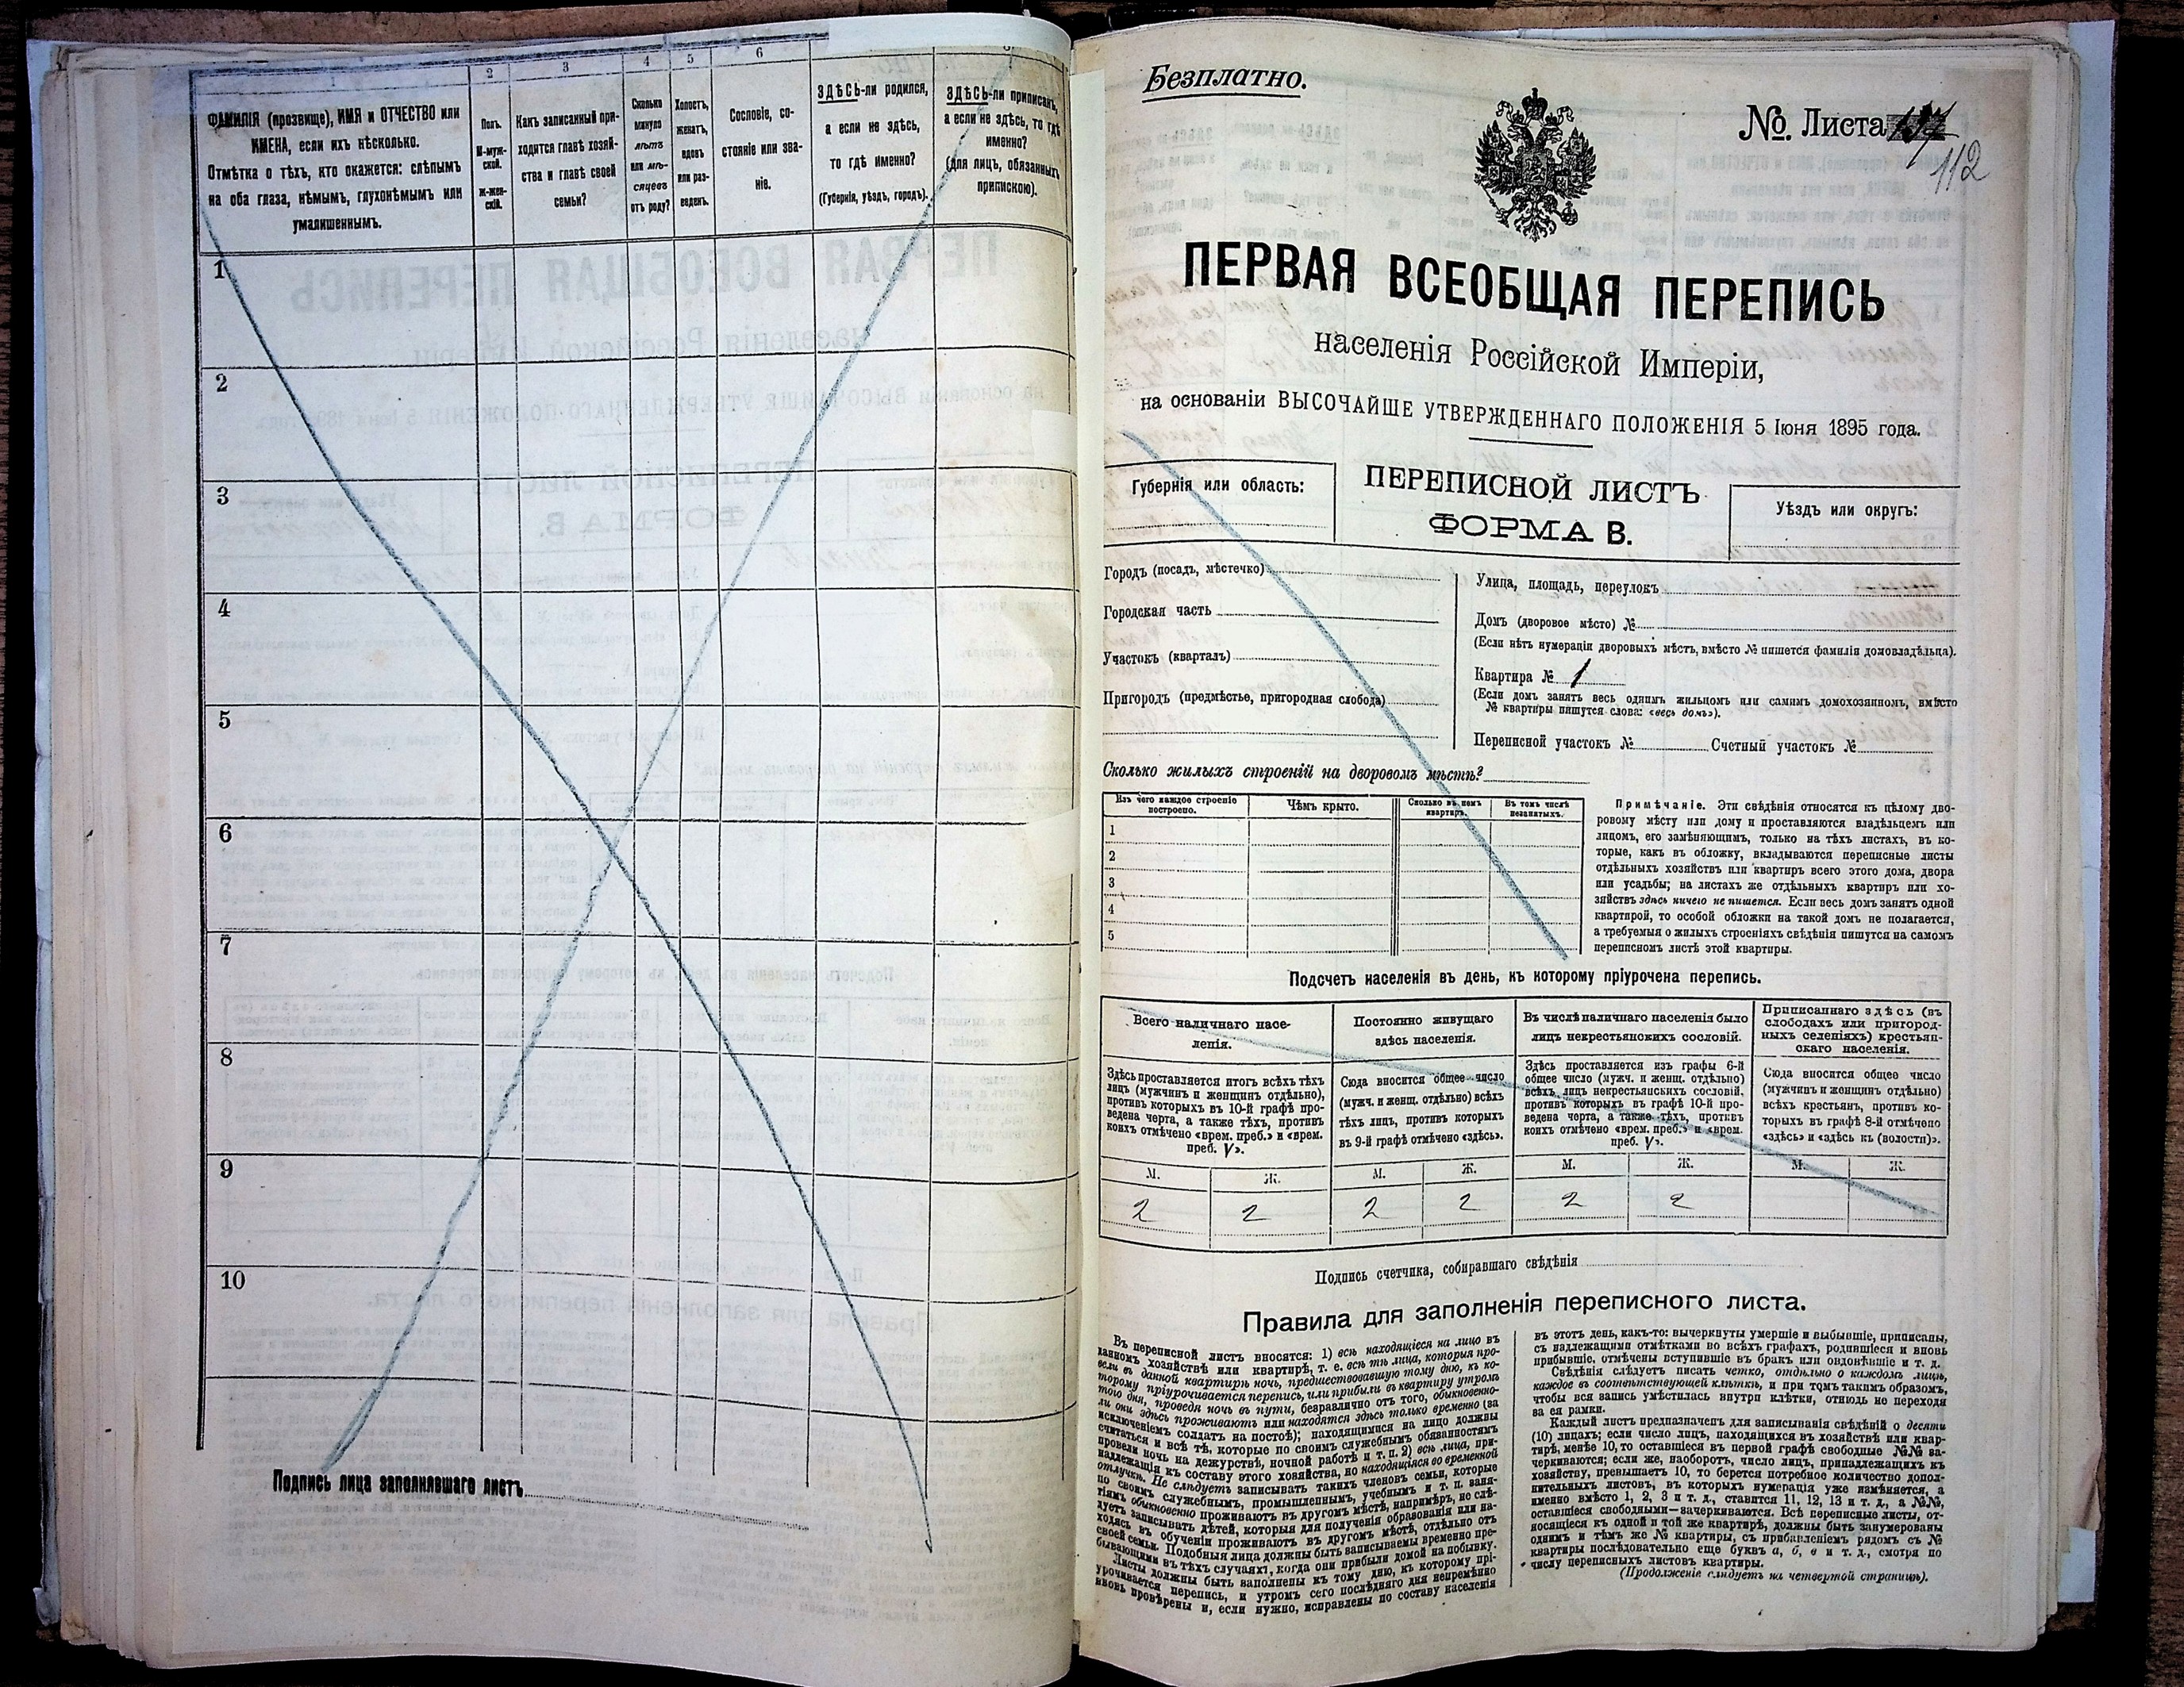 1
2
3
4
5
6
ФАМИЛІЯ (прозвище), ИМЯ и ОТЧЕСТВО или
ИМЕНА, если ихъ нѣсколько.
Отмѣтка о тѣхъ, кто окажется: слѣпымъ
на оба глаза, нѣмымъ, глухонѣмымъ или
умалишеннымъ.
Полъ.
М-муж-
ской.
Ж-жен-
скій.
Какъ записанный при-
ходится главѣ хозяй-
ства и главѣ своей
семьи?
Сколько
минуло
лѣтъ
или мѣ-
сяцевъ
отъ роду?
Холостъ,
женатъ,
вдовъ
или раз-
веденъ.
Сословіе, со-
стояніе или зва-
ніе.
ЗДѢСЬ-ли родился,
а если не здѣсь,
то гдѣ именно?
(Губернія, уѣздъ, городъ).
ЗДѢСЬ-ли приписанъ,
а если не здѣсь, то гдѣ
именно?
(для лицъ, обязанныхъ
припискою).
1
2
3
4
5
6
7
8
9
10
Подпись лица заполнявшаго листъ
Безплатно.
№ Листа
112
ПЕРВАЯ ВСЕОБЩАЯ ПЕРЕПИСЬ
населенія Россійской Имперіи,
на основаніи ВЫСОЧАЙШЕ УТВЕРЖДЕННАГО ПОЛОЖЕНІЯ 5 Іюня 1895 года.
Губернія или область:
ПЕРЕПИСНОЙ ЛИСТЪ
ФОРМА В.
Уѣздъ или округъ:
Городъ (посадъ, мѣстечко)
Городская часть
Участокъ (кварталъ)
Пригородъ (предмѣстье, пригородная слобода)
Улица, площадь, переулокъ
Домъ (дворовое мѣсто) №
(Если нѣтъ нумераціи дворовыхъ мѣстъ, вмѣсто № пишется фамилія домовладѣльца).
Квартира № 1
(Если домъ занятъ весь однимъ жильцомъ или самимъ домохозяиномъ, вмѣсто
№ квартиры пишутся слова: «весь домъ»).
Переписной участокъ № Счетный участокъ №
Сколько жилыхъ строеній на дворовомъ мѣстѣ?
Изъ чего каждое строеніе
построено.
Чѣмъ крыто.
Сколько въ немъ
квартиръ.
Въ томъ числѣ
незанятыхъ.
1
2
3
4
5
Примѣчаніе. Эти свѣдѣнія относятся къ цѣлому дво-
ровому мѣсту или дому и проставляются владѣльцемъ или
лицомъ, его замѣняющимъ, только на тѣхъ листахъ, въ ко-
торые, какъ въ обложку, вкладываются переписные листы
отдѣльныхъ хозяйствъ или квартиръ всего этого дома, двора
или усадьбы; на листахъ же отдѣльныхъ квартиръ или хо-
зяйствъ здѣсь ничего не пишется. Если весь домъ занятъ одной
квартирой, то особой обложки на такой домъ не полагается,
а требуемыя о жилыхъ строеніяхъ свѣдѣнія пишутся на самомъ
переписномъ листѣ этой квартиры.
Подсчетъ населенія въ день, къ которому пріурочена перепись.
Всего наличнаго насе-
ленія.
Постоянно живущаго
здѣсь населенія.
Въ числѣ наличнаго населенія было
лицъ некрестьянскихъ сословій.
Приписаннаго здѣсь (въ
слободахъ или пригород-
ныхъ селеніяхъ) крестьян-
скаго населенія.
Здѣсь проставляется итогъ всѣхъ тѣхъ
лицъ (мужчинъ и женщинъ отдѣльно),
противъ которыхъ въ 10-й графѣ про-
ведена черта, а также тѣхъ, противъ
коихъ отмѣчено «врем. преб.» и «врем.
преб. V».
Сюда вносится общее число
(мужч. и женщ. отдѣльно) всѣхъ
тѣхъ лицъ, противъ которыхъ
въ 9-й графѣ отмѣчено «здѣсь».
Здѣсь проставляется изъ графы 6-й
общее число (мужч. и женщ. отдѣльно)
всѣхъ лицъ некрестьянскихъ сословій,
противъ которыхъ въ графѣ 10-й про-
ведена черта, а также тѣхъ, противъ
коихъ отмѣчено «врем. преб.» и «врем.
преб. V».
Сюда вносится общее число
(мужчинъ и женщинъ отдѣльно)
всѣхъ крестьянъ, противъ ко-
торыхъ въ графѣ 8-й отмѣчено
«здѣсь» и «здѣсь къ (волости)».
М. Ж. М. Ж. М. Ж. М. Ж.
2 2 2 2 2 2
Подпись счетчика, собиравшаго свѣдѣнія
Правила для заполненія переписного листа.
Въ переписной листъ вносятся: 1) всѣ находящіеся на лицо въ
данномъ хозяйствѣ или квартирѣ, т. е. всѣ тѣ лица, которыя про-
вели въ данной квартирѣ ночь, предшествовавшую тому дню, къ ко-
торому пріурочивается перепись, или прибыли въ квартиру утромъ
того дня, проведя ночь въ пути, безразлично отъ того, обыкновенно-
ли они здѣсь проживаютъ или находятся здѣсь только временно (за
исключеніемъ солдатъ на постоѣ); находящимися на лицо должны
считаться и всѣ тѣ, которые по своимъ служебнымъ обязанностямъ
провели ночь на дежурствѣ, ночной работѣ и т. п. 2) всѣ лица, при-
надлежащія къ составу этого хозяйства, но находящіяся во временной
отлучкѣ. Не слѣдуетъ записывать такихъ членовъ семьи, которые
по своимъ служебнымъ, промышленнымъ, учебнымъ и т. п. заня-
тіямъ обыкновенно проживаютъ въ другомъ мѣстѣ, напримѣръ, не слѣ-
дуетъ записывать дѣтей, которыя для полученія образованія или на-
ходясь въ обученіи проживаютъ въ другомъ мѣстѣ, отдѣльно отъ
своей семьи. Подобныя лица должны быть записываемы временно пре-
бывающими въ тѣхъ случаяхъ, когда они прибыли домой на побывку.
Листы должны быть заполнены къ тому дню, къ которому прі-
урочивается перепись, и утромъ сего послѣдняго дня непремѣнно
вновь провѣрены и, если нужно, исправлены по составу населенія
въ этотъ день, какъ-то: вычеркнуты умершіе и выбывшіе, приписаны,
съ надлежащими отмѣтками во всѣхъ графахъ, родившіеся и вновь
прибывшіе, отмѣчены вступившіе въ бракъ или овдовѣвшіе и т. д.
Свѣдѣнія слѣдуетъ писать четко, отдѣльно о каждомъ лицѣ,
каждое въ соотвѣтствующей клѣткѣ, и при томъ такимъ образомъ,
чтобы вся запись умѣстилась внутри клѣтки, отнюдь не переходя
за ея рамки.
Каждый листъ предназначенъ для записыванія свѣдѣній о десяти
(10) лицахъ; если число лицъ, находящихся въ хозяйствѣ или квар-
тирѣ, менѣе 10, то оставшіеся въ первой графѣ свободные №№ за-
черкиваются; если же, наоборотъ, число лицъ, принадлежащихъ къ
хозяйству, превышаетъ 10, то берется потребное количество допол-
нительныхъ листовъ, въ которыхъ нумерація уже измѣняется, а
именно вмѣсто 1, 2, 3 и т. д., ставится 11, 12, 13 и т. д., а №№,
оставшіеся свободными—зачеркиваются. Всѣ переписные листы, от-
носящіеся къ одной и той же квартирѣ, должны быть занумерованы
однимъ и тѣмъ же № квартиры, съ прибавленіемъ рядомъ съ №
квартиры послѣдовательно еще буквъ а, б, в и т. д., смотря по
числу переписныхъ листовъ квартиры.
(Продолженіе слѣдуетъ на четвертой страницѣ).